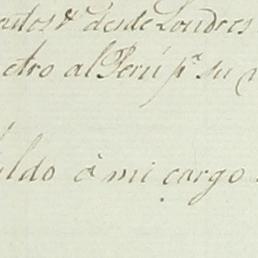 desde Londres
etro al Perú pª su
ldo à mi cargo